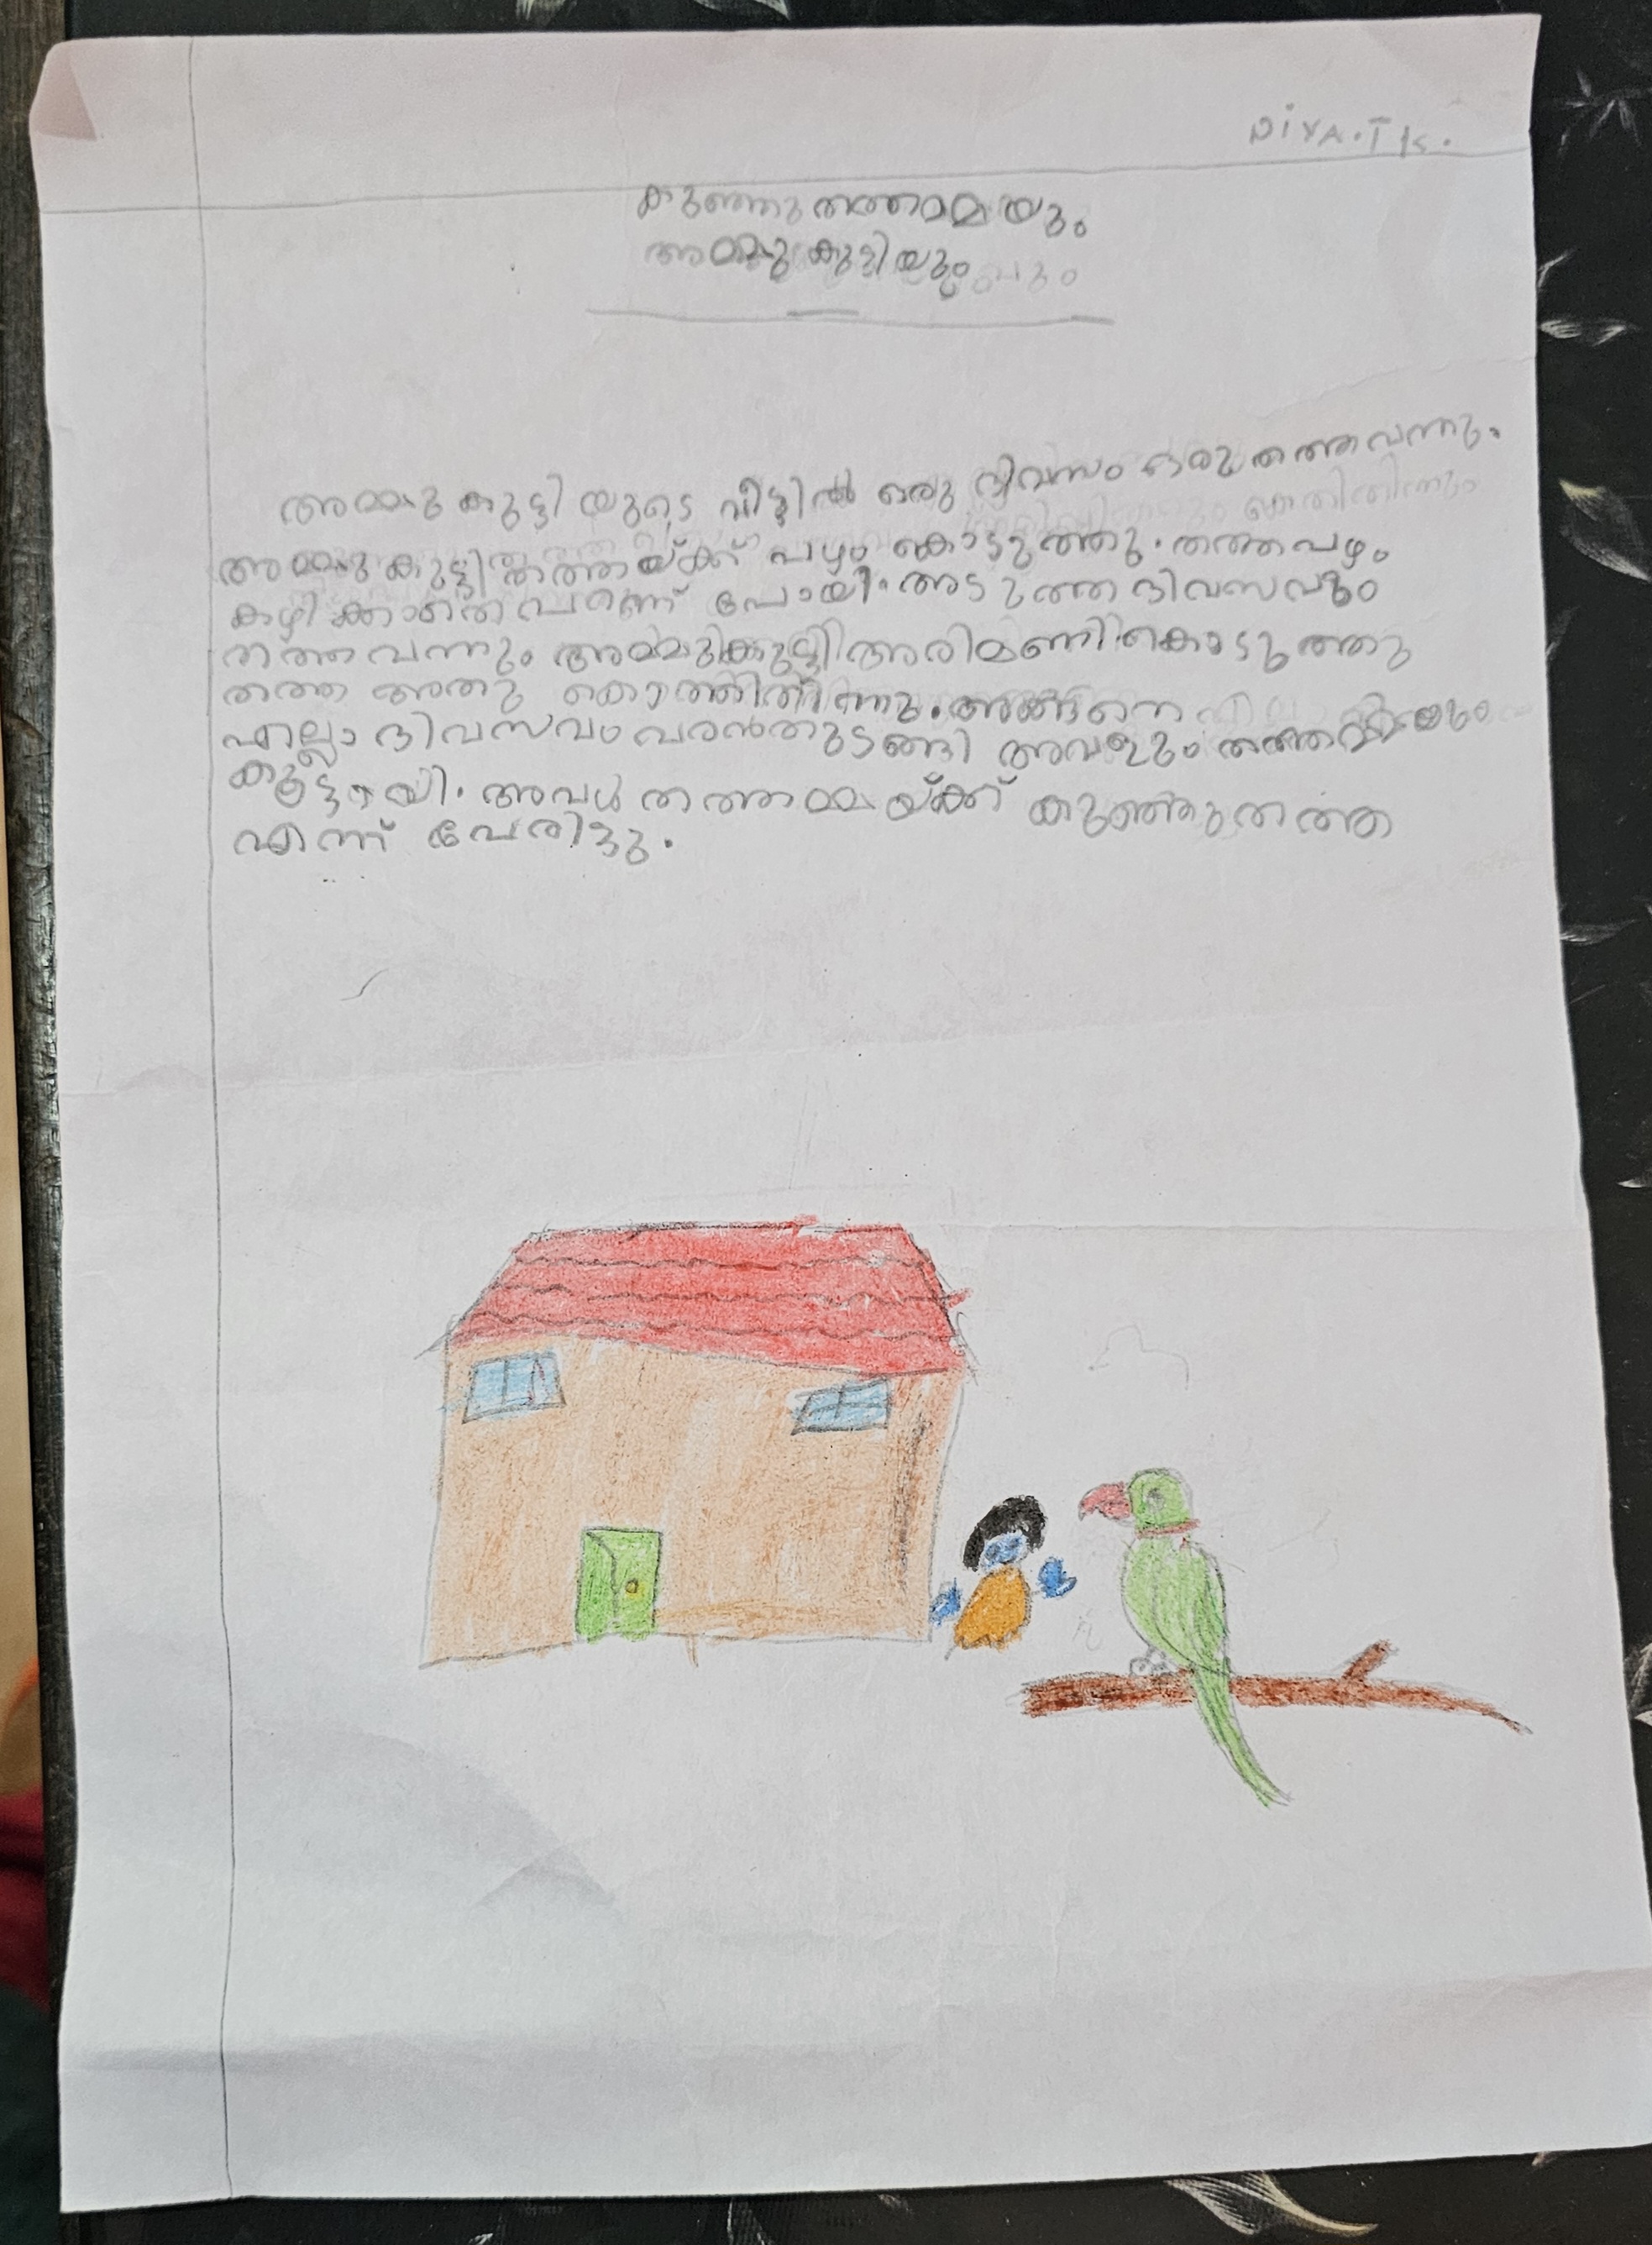 DIYA.TK.
കുഞ്ഞു തത്തമ്മയും
അമ്മു കുട്ടിയും
അമ്മു കുട്ടിയുടെ വീട്ടിൽ ഒരു ദിവസം ഒരു തത്ത വന്നു.
അമ്മു കുട്ടി തത്തയ്ക്ക് പഴം കൊടുത്തു. തത്ത പഴം
കഴിക്കാതെ പറന്ന് പോയി. അടുത്ത ദിവസവും
തത്ത വന്നു. അമ്മുക്കുട്ടി അരിമണി കൊടുത്തു
തത്ത അതു കൊത്തിതിന്നു. അങ്ങനെ
എല്ലാ ദിവസവം വരൻതുടങ്ങി അവളും തത്തമ്മയും
കൂട്ടായി. അവൾ തത്തമ്മയ്ക്ക് കുഞ്ഞുതത്ത
എന്ന് പേരിട്ടു.